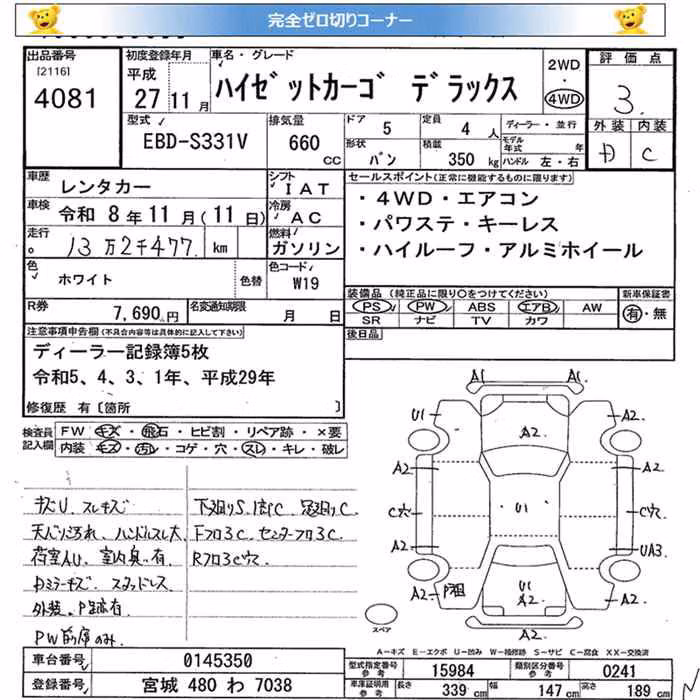 完全ゼロ切りコーナー
出品番号
[2116]
4081
初度登録年月
平成
27 11 月
車名・グレード
ハイゼットカーゴ デラックス
2WD
・
4WD
評価点
3.
外装 内装
D C
型式
EBD-S331V
排気量
660
CC
ドア 5
定員 4 人
形状 バン
積載 350 kg
ディーラー・並行
モデル年式 年
ハンドル 左・右
車歴 レンタカー
シフト IAT
車検 令和 8年 11月(11日)
冷房 AC
走行 13万2千477. km
燃料 ガソリン
色 ホワイト
色替
色コード W19
R券 7,690円
名変通知期限 月 日
セールスポイント(正常に機能するものに限ります)
・4WD・エアコン
・パワステ・キーレス
・ハイルーフ・アルミホイール
装備品 (純正品に限り○をつけてください)
PS PW ABS エアB AW
SR ナビ TV カワ
新車保証書
有・無
後日品
注意事項申告欄(不具合内容等は具体的に記入して下さい)
ディーラー記録簿5枚
令和5、4、3、1年、平成29年
修復歴 有〔箇所 〕
検査員記入欄
FW キズ・飛石・ヒビ割・リペア跡・×要
内装 キズ・汚レ・コゲ・穴・スレ・キレ・破レ
キズU. スレキズ
天バリ汚れ、ハンドルスレ大
荷室AU. 室内臭い有.
Dミラーキズ スタッドレス
外装.P跡有
PW前席のみ.
下廻りS.
Fフロ3C. センターフロ3C.
Rフロ3C穴.
A1 A1
U1 A2 A2.
A2 A2
C穴 U1 C穴
A2 UA3
U1
A2
A2 A2
スペア
A-キズ E-エクボ U-凹み W-補修跡 S-サビ C-腐食 XX-交換済
車台番号 0145350
登録番号 宮城 480 わ 7038
型式指定番号 参考 15984
類別区分番号 参考 0241
車庫証明用 参考 長さ 339 cm 幅 147 cm 高さ 189 cm